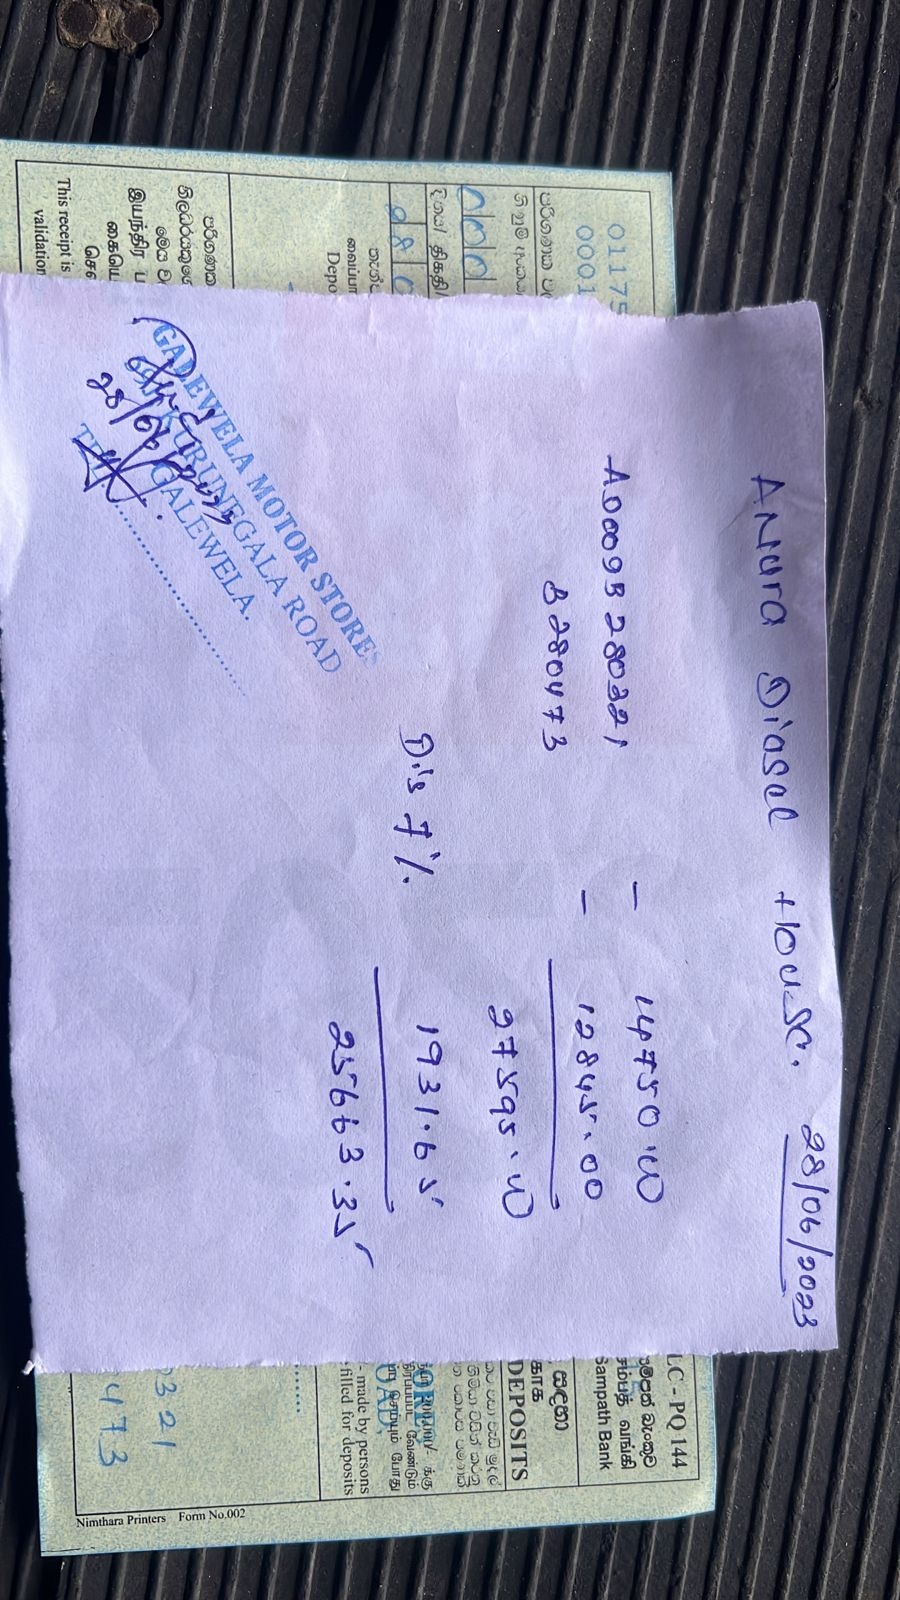 Anura Diasel House. 28/06/2023
AD0095280321 – 14750.00
8280473 – 12845.00
27595.00
Dis 7% 1931.65
25663.35
GALEWELA MOTOR STORES
KURUNEGALA ROAD
GALEWELA.
TEL
28/06/2023
0117
0001
This receipt is
validation
Depo
LC - PQ 144
සම්පත් බැංකුව
சம்பத் வங்கி
Sampath Bank
සඳහා
DEPOSITS
- made by persons
filled for deposits
0321
473
Nimthara Printers Form No.002